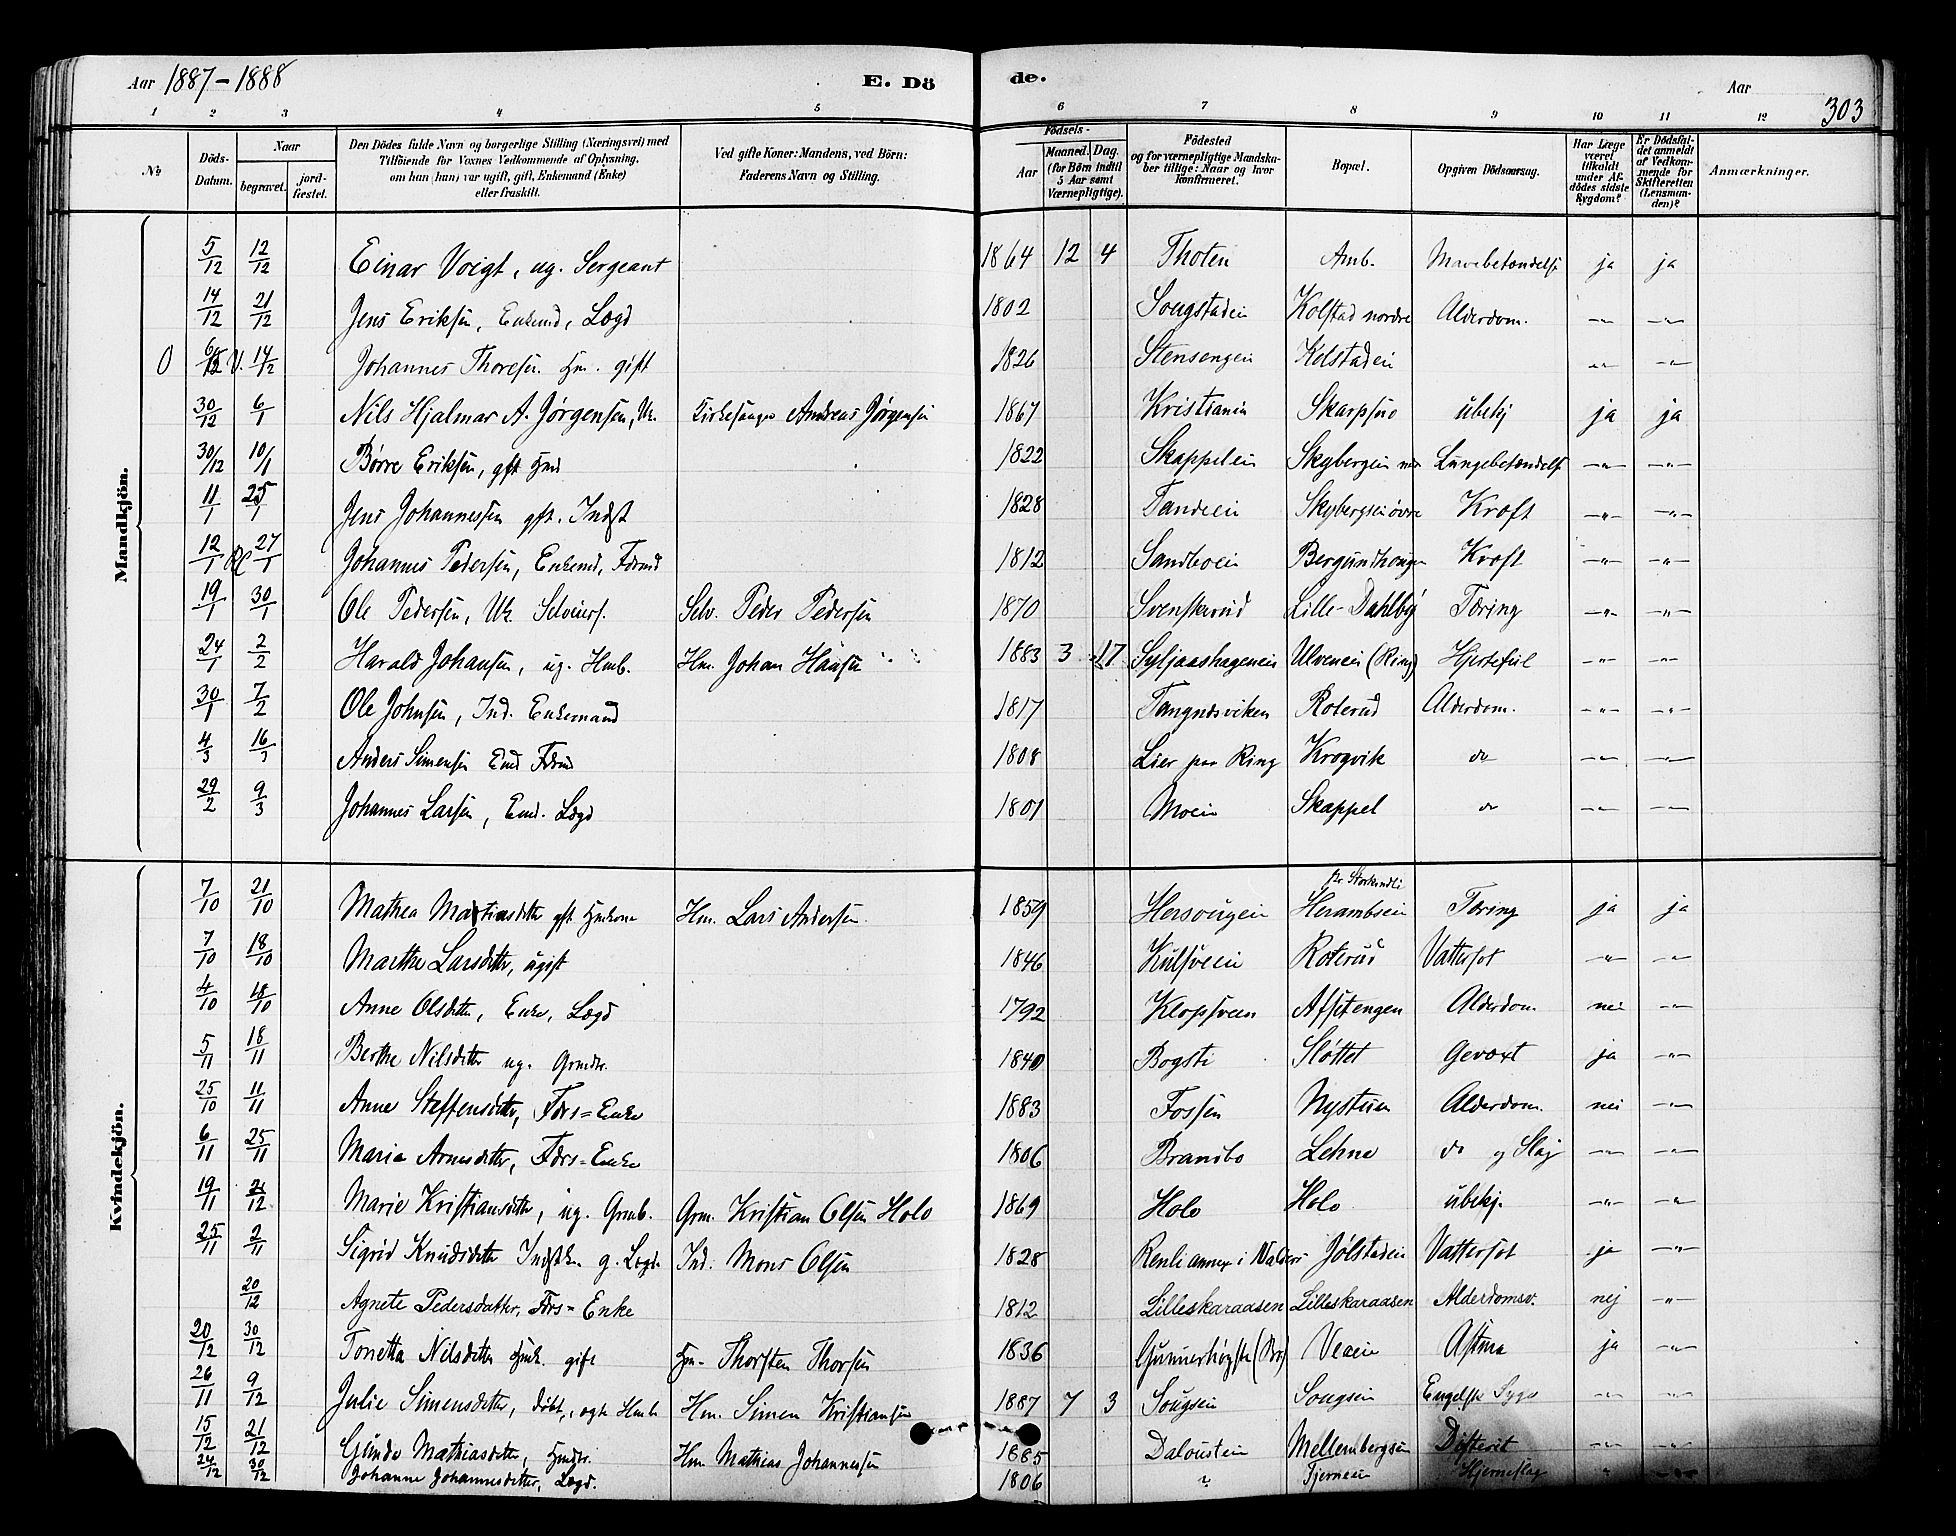 Aar 1887-1888 E. Dö de. Aar 303
1 2 3 4 5 6 7 8 9 10 11 12
No Döds-Datum. Naar begravet. jordfæstet. Den Dödes fulde Navn og borgerlige Stilling (Næringsvei) med Tilföiende for Voxnes Vedkommende af Oplysning, om han (hun) var ugift, gift, Enkemand (Enke) eller fraskilt. Ved gifte Koner: Mandens, ved Börn: Faderens Navn og Stilling. Födsels- Aar Maaned. Dag. (for Börn indtil 5 Aar samt Værnepligtige). Födested og for værnepligtige Mandskaber tillige: Naar og hvor konfirmeret. Bopæl. Opgiven Dödsaarsag. Har Læge været tilkaldt under Afdödes sidste Sygdom? Er Dödsfaldet anmeldt af Vedkommende for Skifteretten (Lensmanden)? Anmærkninger.
Mandkjön.
5/12 12/12 Einar Voigt, ug. Sergeant 1864 12 4 Thoten Amb. Mavebetændelse ja ja
14/12 21/12 Jens Eriksen, Enkemd, Lægd 1802 Sougstadein Kolstad nordre Alderdom. -"- -"-
O 14/2 Johannes Thoresen. Hm. gift 1826 Stensengen Kolstadein -"- -"-
30/12 6/1 Nils Hjalmar A. Jørgensen, Uk. Kirkesanger Andreas Jørgensen 1867 Kristiania Skarpsno ubekj ja ja
30/12 10/1 Børre Eriksen, gft Hmd 1822 Skappelein Skybergein Lungebetændelse -"- -"-
11/1 25/1 Jens Johannessen gft. Indst 1828 Tandeein Skybergsein øvre Kræft -"- -"-
12/1 27/1 Johannes Pedersen, Enkemd, Fdrmd 1812 Sandboein Bergundhougen Kræft -"- -"-
19/1 30/1 Ole Pedersen, Uk. Selveiers. Selv. Peder Pedersen 1870 Svenskerud Lille-Dahlby Tæring -"- -"-
24/1 2/2 Harald Johansen, ug. Hmb. Hm. Johan Hansen 1883 3 17 Syljaashagenein Ulvenein (Ring) Hjertefeil -"- -"-
30/1 7/2 Ole Johnsen, Ind. Enkemand 1817 Tangnæsviken Roterud Alderdom. -"- -"-
4/3 16/3 Anders Simensen Emd Fdrmd 1808 Lier paa Ring Krogvik do -"- -"-
29/2 9/3 Johannes Larsen, Emd. Lægd 1801 Moein Skappel do -"- -"-
Kvindekjön.
7/10 21/10 Mathea Martinsdtter gft Hmkone Hm. Lars Andersen 1859 Hersougein Herambsein Tæring ja ja
7/10 18/10 Marthe Larsdtter, ugift 1846 Kulsveein Roterud Vattersot -"- -"-
4/10 18/10 Anne Olsdtter, Enke, Lægd 1792 Klopsveen Afsetengen Alderdom nei -"-
5/11 18/11 Berthe Nilsdtter ug. Grmdtr. 1840 Bogsti Slottet Gevæxt ja -"-
25/10 11/11 Anne Steffensdtter, Fdrs=Enke 1883 Fossen Nystuen Alderdom. nei -"-
6/11 25/11 Marie Arnesdtter, Fdrs=Enke 1806 Brandbo Lehne do og Slag -"- -"-
19/11 2/12 Marie Kristiansdtter, ug. Grmb. Grm. Kristian Olsen Holo 1869 Holo Holo ubekj. -"- -"-
25/11 2/11 Sigrid Knudsdtter Indstk. g. Lægd Ind. Mons Olsen 1828 Renli annex i Valders Jølstadein Vattersot ja -"-
20/12 Agnete Pedersdatter, Fdrs=Enke 1812 Lilleskaraasen Lilleskaraasen Alderdomsv. nej -"-
20/12 30/12 Tonetta Nilsdtter Hmk. gift Hm. Thorsten Thorsen 1836 Gunnerhøgst (Bro) Veein Astma ja -"-
26/11 9/12 Julie Simensdtter, døbt, ægte Hmb Hm. Simen Kristiansen 1887 7 3 Sougsein Sougsein Engelsk Syge -"- -"-
15/12 21/12 Gunda Mathiasdtter, Hmdtr. Hm Mathias Johannessen 1885 Daloustein Mellembergsein Difterit -"- -"-
24/12 30/12 Johanne Johannesdtter, Lægd. 1806 ? Tjerneein Hjerneslag " -"-